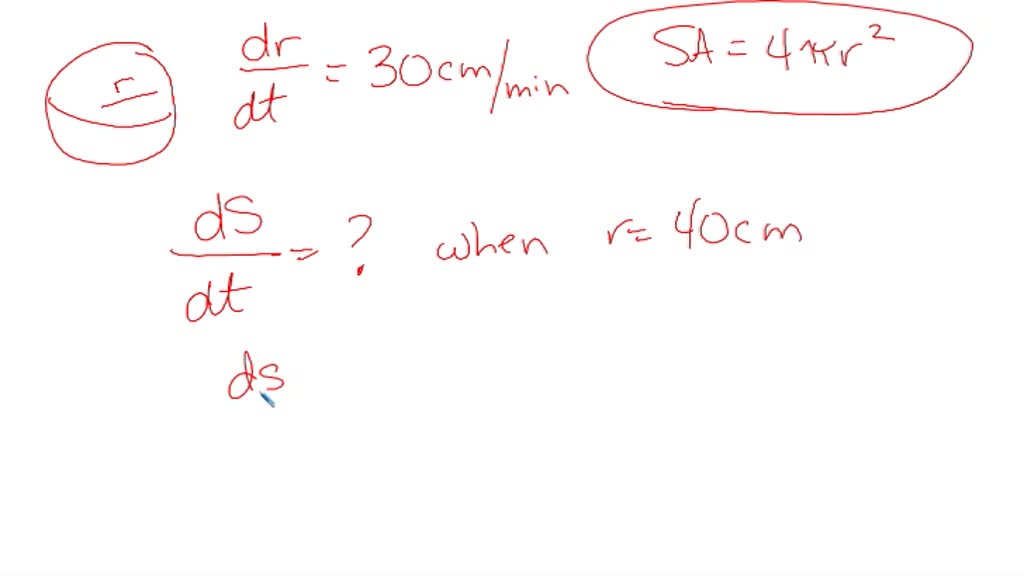 r
dr/dt = 30cm/min
SA = 4πr²
dS/dt = ? when r= 40cm
ds